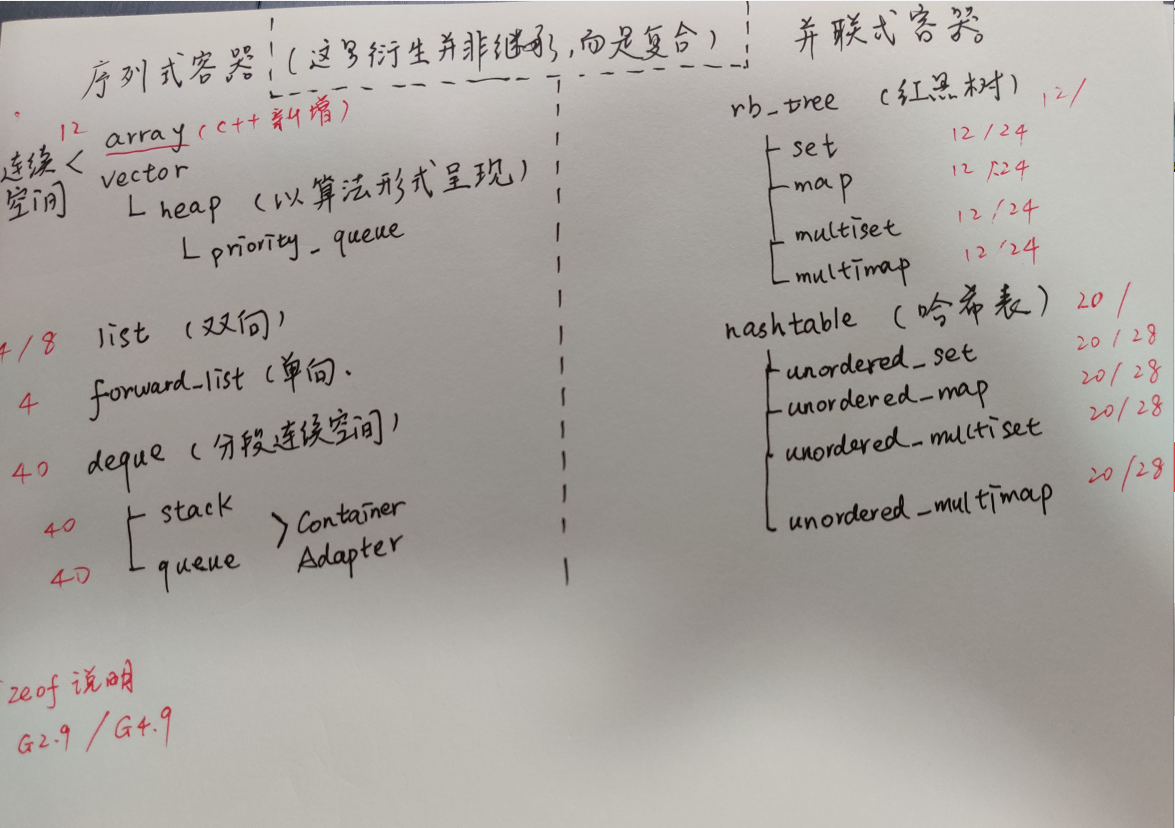 序列式容器
(这里衍生并非继承,而是复合)
12 array (C++ 新增)
连续空间 <
vector
heap (以算法形式呈现)
priority_queue
/8 list (双向)
4 forward_list (单向.
40 deque (分段连续空间)
40 stack
40 queue
> Container Adapter
zeof 说明
G2.9 / G4.9
并联式容器
rb_tree (红黑树) 12/
set 12/24
map 12/24
multiset 12/24
multimap 12/24
hashtable (哈希表) 20/
unordered_set 20/28
unordered_map 20/28
unordered_multiset 20/28
unordered_multimap 20/28